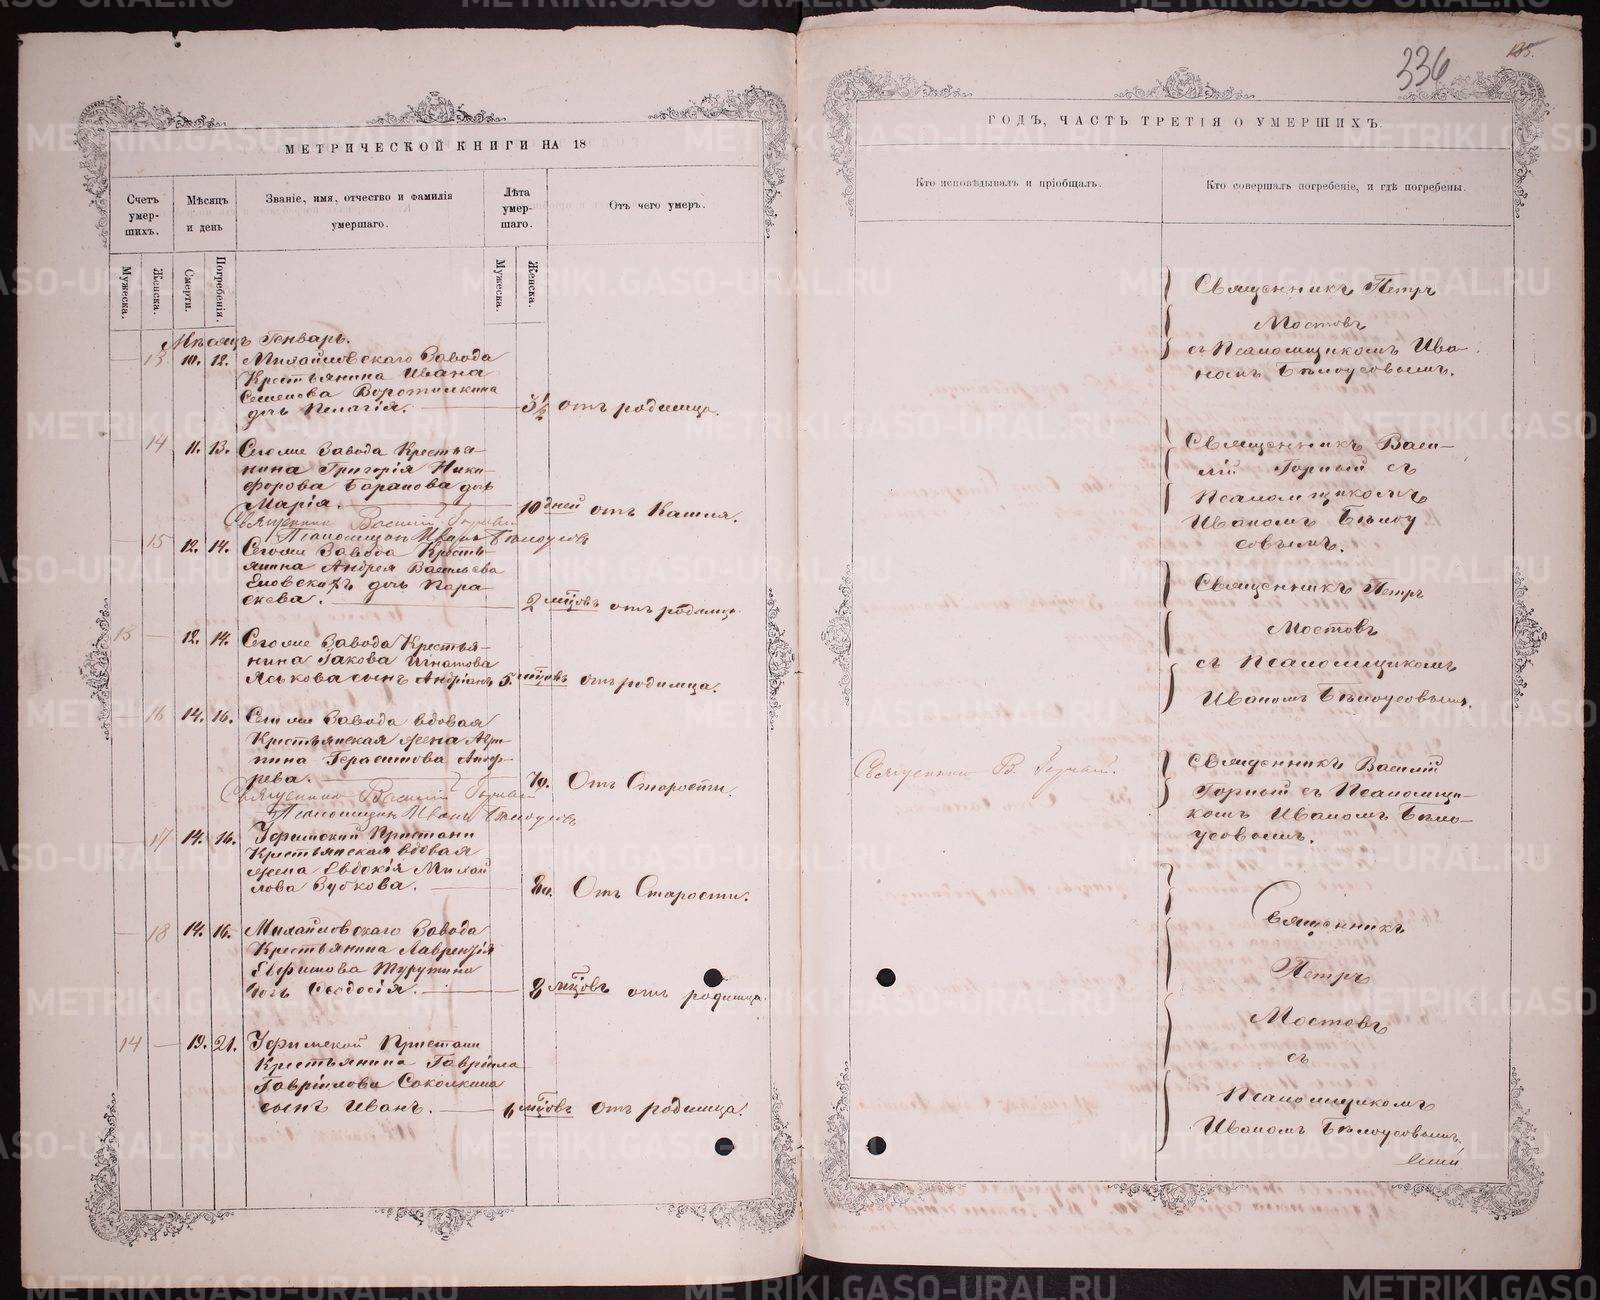 МЕТРИЧЕСКОЙ КНИГИ НА 18
Счетъ умер-шихъ.
Мѣсяцъ и день
Званіе, имя, отчество и фамилія умершаго.
Лѣта умер-шаго.
Отъ чего умеръ.
Мужеска.
Женска.
Смерти.
Погребенія.
Мужеска.
Женска.
Мѣсяцъ Генварь.
13 10. 12. Михайловскаго Завода
Крестьянина Ивана
Семенова
дочь Пелагія. 3½ отъ родимца.
14 11. 13. Сегоже Завода Крестья-
нина Григорія Ники-
форова Баранова дочь
Марія. 10 дней отъ Кашля.
Священникъ Василій Горный
Псаломщикъ Иванъ Бѣлоусовъ
15 12. 14. Сегоже Завода Кресть-
янина Андрея Васильева
дочь Пара-
скева. 2 мѣсцовъ отъ родимца
13 12. 14. Сегоже Завода Крестья-
нина Іакова Игнатова
Яськова сынъ Андріанъ 5. мѣсцовъ отъ родимца.
16 14. 16. Сегоже Завода вдовая
Крестьянская жена Агри-
пина Герасимова
70. Отъ Старости.
Священникъ Василій Горный
Псаломщикъ Иванъ Бѣлоусовъ
17 14. 16. Уфимской Пристани
Крестьянская вдовая
жена Евдокія Михай
лова Зубкова. 80. Отъ Старости.
18 14. 16. Михайловскаго Завода
Крестьянина Лаврентія
Евфимова
дочь Ѳеодосія. 8 мѣсцовъ отъ родимца.
14 19. 21. Уфимской Пристани
Крестьянина Гавріила
Гавріилова Соколкина
сынъ Иванъ. 6 мѣсцовъ Отъ родимца.
336
185.
ГОДЪ, ЧАСТЬ ТРЕТІЯ О УМЕРШИХЪ.
Кто исповѣдывалъ и пріобщалъ.
Кто совершалъ погребеніе, и гдѣ погребены.
Священникъ Петръ
Мостовъ
съ Псаломщикомъ Ива
номъ Бѣлоусовымъ.
Священникъ Васи-
лій Горный съ
Псаломщикомъ
Иваномъ Бѣлоу
совымъ.
Священникъ Петръ
Мостовъ
съ Псаломщикомъ
Иваномъ Бѣлоусовымъ.
Священникъ В. Горный.
Священникъ Василій
Горный съ Псаломщи-
комъ Иваномъ Бѣло-
усовымъ.
Священникъ
Петръ
Мостовъ
съ
Псаломщикомъ
Иваномъ Бѣлоусовымъ.
METRIKI.GASO-URAL.RU